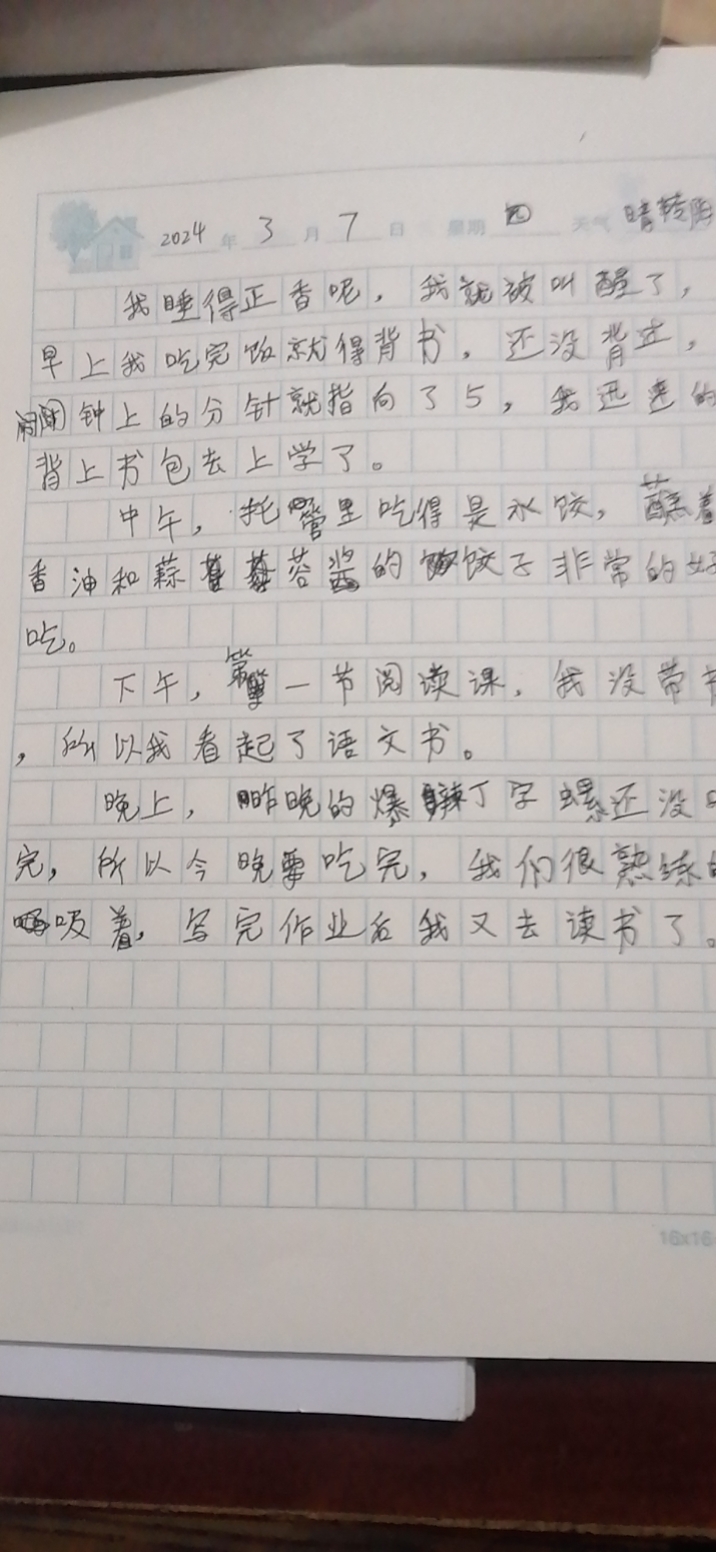 2024年3月7日 星期四 天气 晴转阴
我睡得正香呢，我就被叫醒了，
早上我吃完饭就得背书，还没背过，
闹钟上的分针就指向了5，我迅速的
背上书包去上学了。
中午，托管里吃得是水饺，蘸着
香油和蒜蓉酱的饺子非常的好
吃。
下午，第一节阅读课，我没带书
，所以我看起了语文书。
晚上，昨晚的爆辣丁字螺还没
完，所以今晚要吃完，我们很熟练的
吸着，写完作业后我又去读书了。
16x16